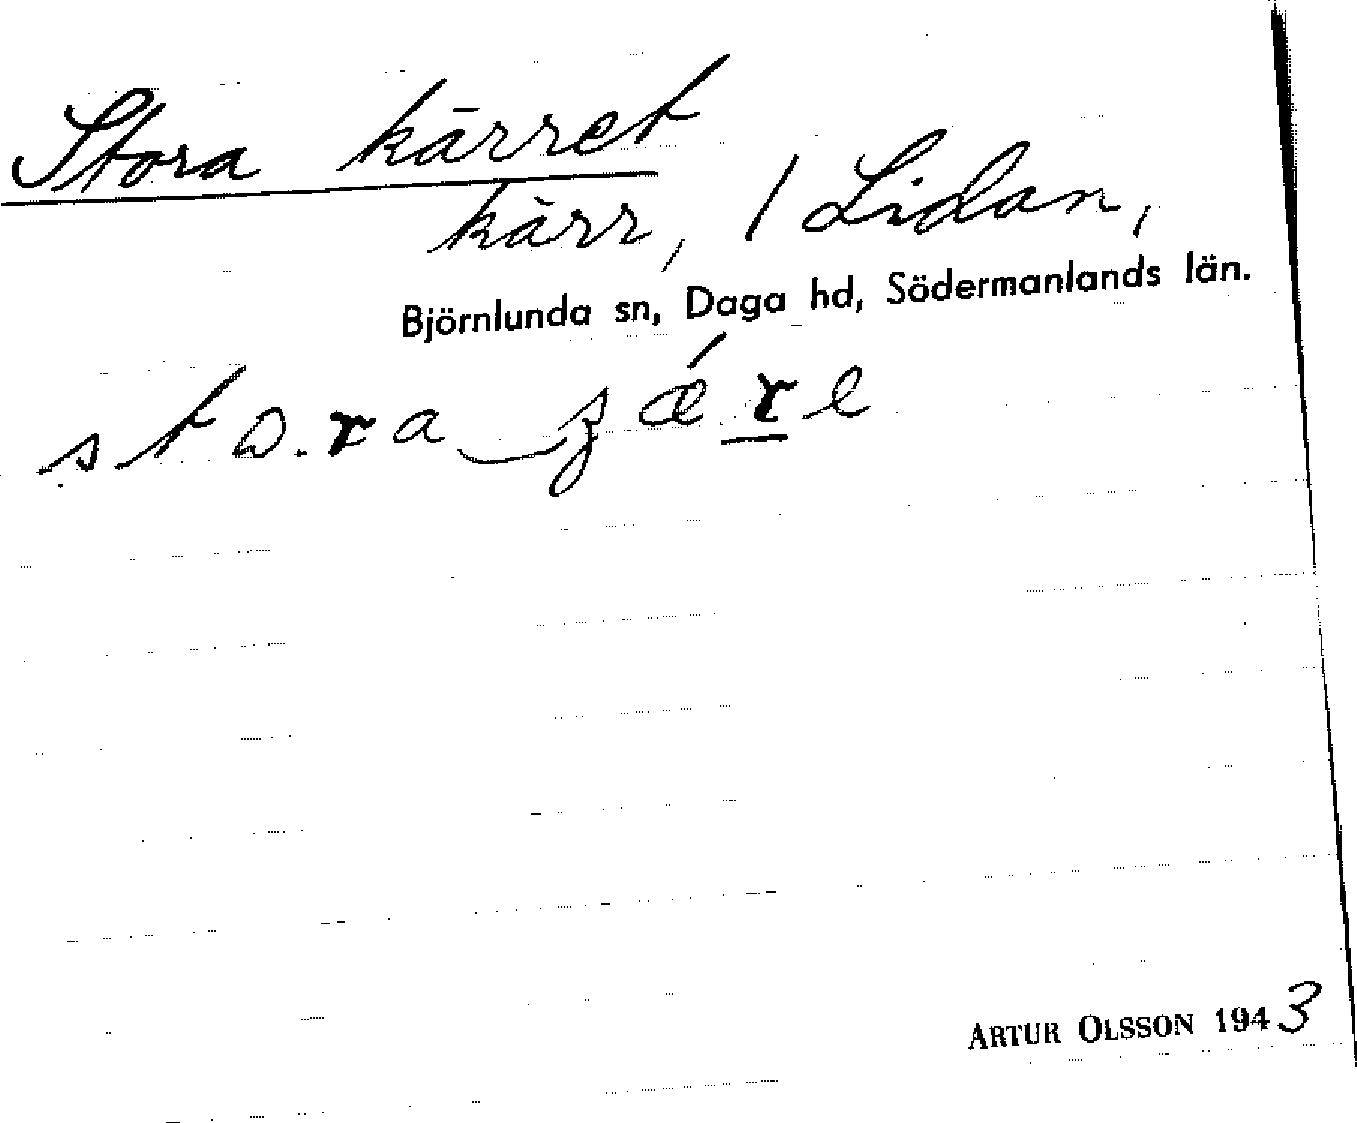 Stora kärret
kärr, / Lidan,
Björnlunda sn, Daga hd, Södermanlands län.
ARTUR OLSSON 1943